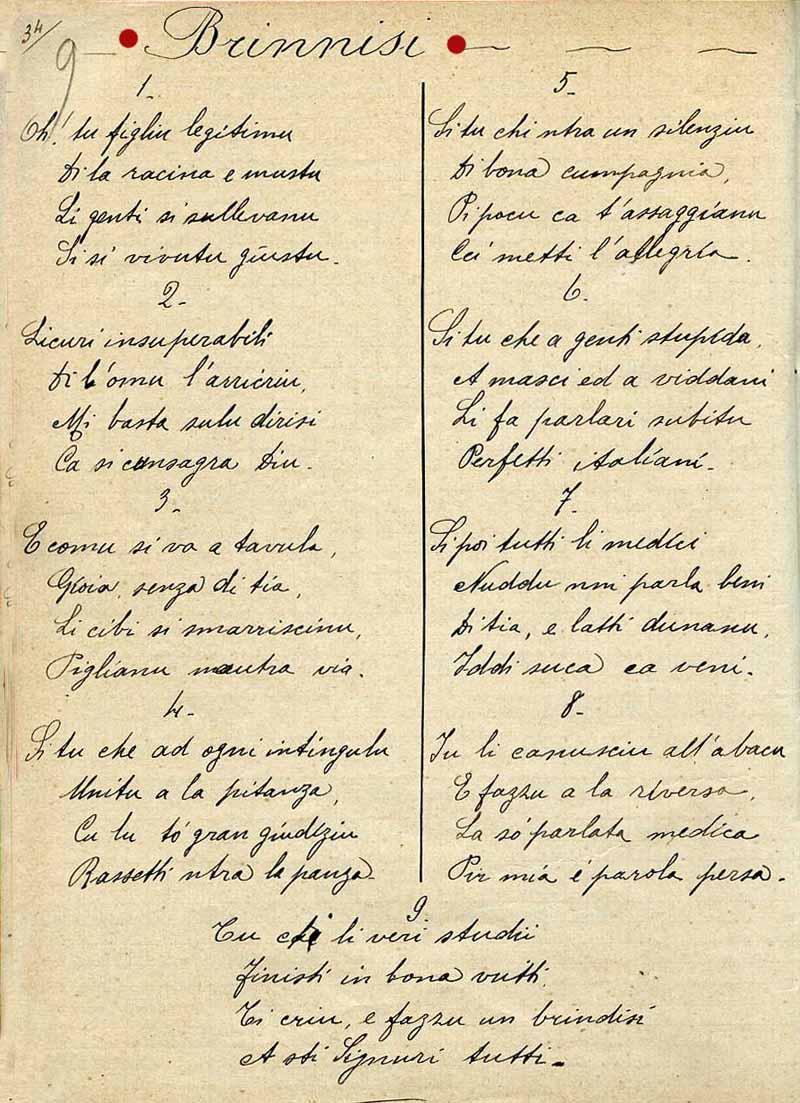 34
9
Brinnisi
1-
Oh! tu figliu legitimu
Di la racina e mustu
Li genti si sullevanu
Si si vivutu giustu.
2-
Licuri insuperabili
Di l'omu l'arricriu,
Mi basta sulu dirisi
Ca si cunsagra Diu.
3-
E comu si va a tavula,
Gioia, senza di tia,
Li cibi si smarriscinu,
Piglianu nautra via.
4-
Si tu che ad ogni intingulu
Unitu a la pitanza,
Cu lu tó gran giudiziu
Rassetti ntra la panza.
5-
Si tu chi ntra un silenziu
Di bona cumpagnia,
Pi pocu ca t'assaggianu
Cci metti l'allegria.
6-
Si tu che a genti stupida,
A masci ed a viddani
Li fa parlari subitu
Perfetti italiani.
7-
Si poi tutti li medici
Nuddu nni parla beni
Di tia, e latti dunanu,
Iddi suca ca veni.
8-
Iu li canusciu all'abacu
E fazzu a la riversa,
La só parlata medica
Pir mia é parola persa.
9-
Tu chi li veri studii
Finisti in bona vutti,
Ti criu, e fazzu un brindisi
A sti Signuri tutti.